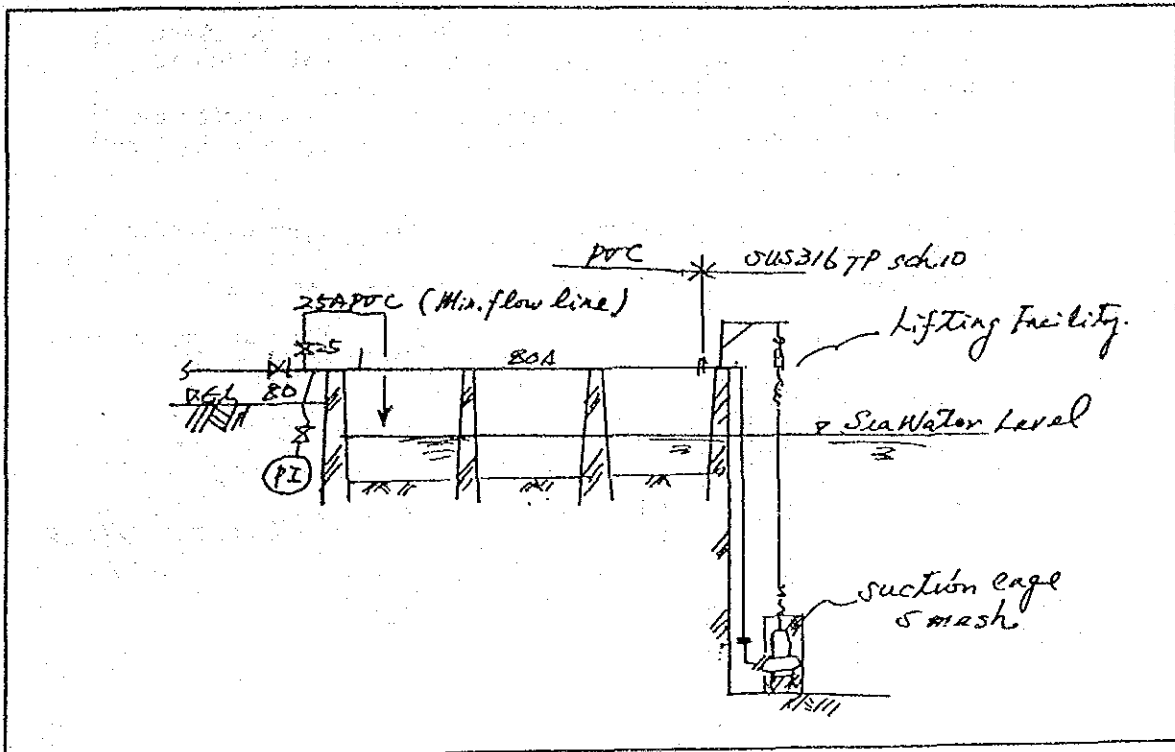 PVC
SUS316 TP sch.10
25A PVC (Min. flow line)
Lifting Facility.
25
80A
80
Sea Water Level
PI
suction cage
5 mesh